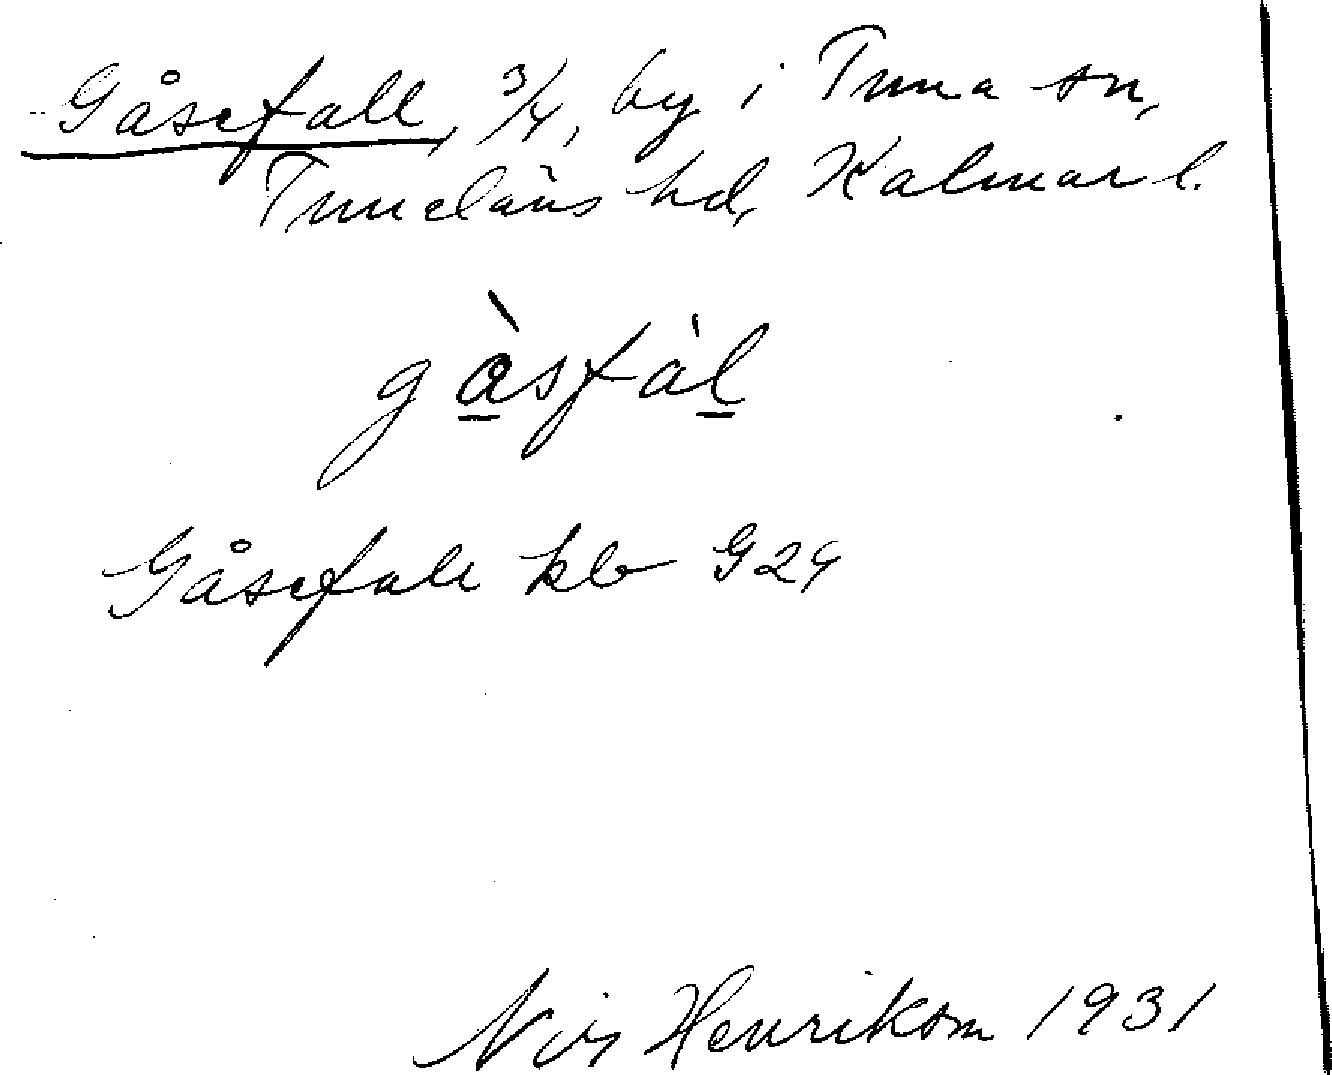 Gåsefall, 3/4, by i Tuna sn,
Tunaläns hd, Kalmar l.
gàsfàl
Gåsefall kb G24
Henrikson 1931